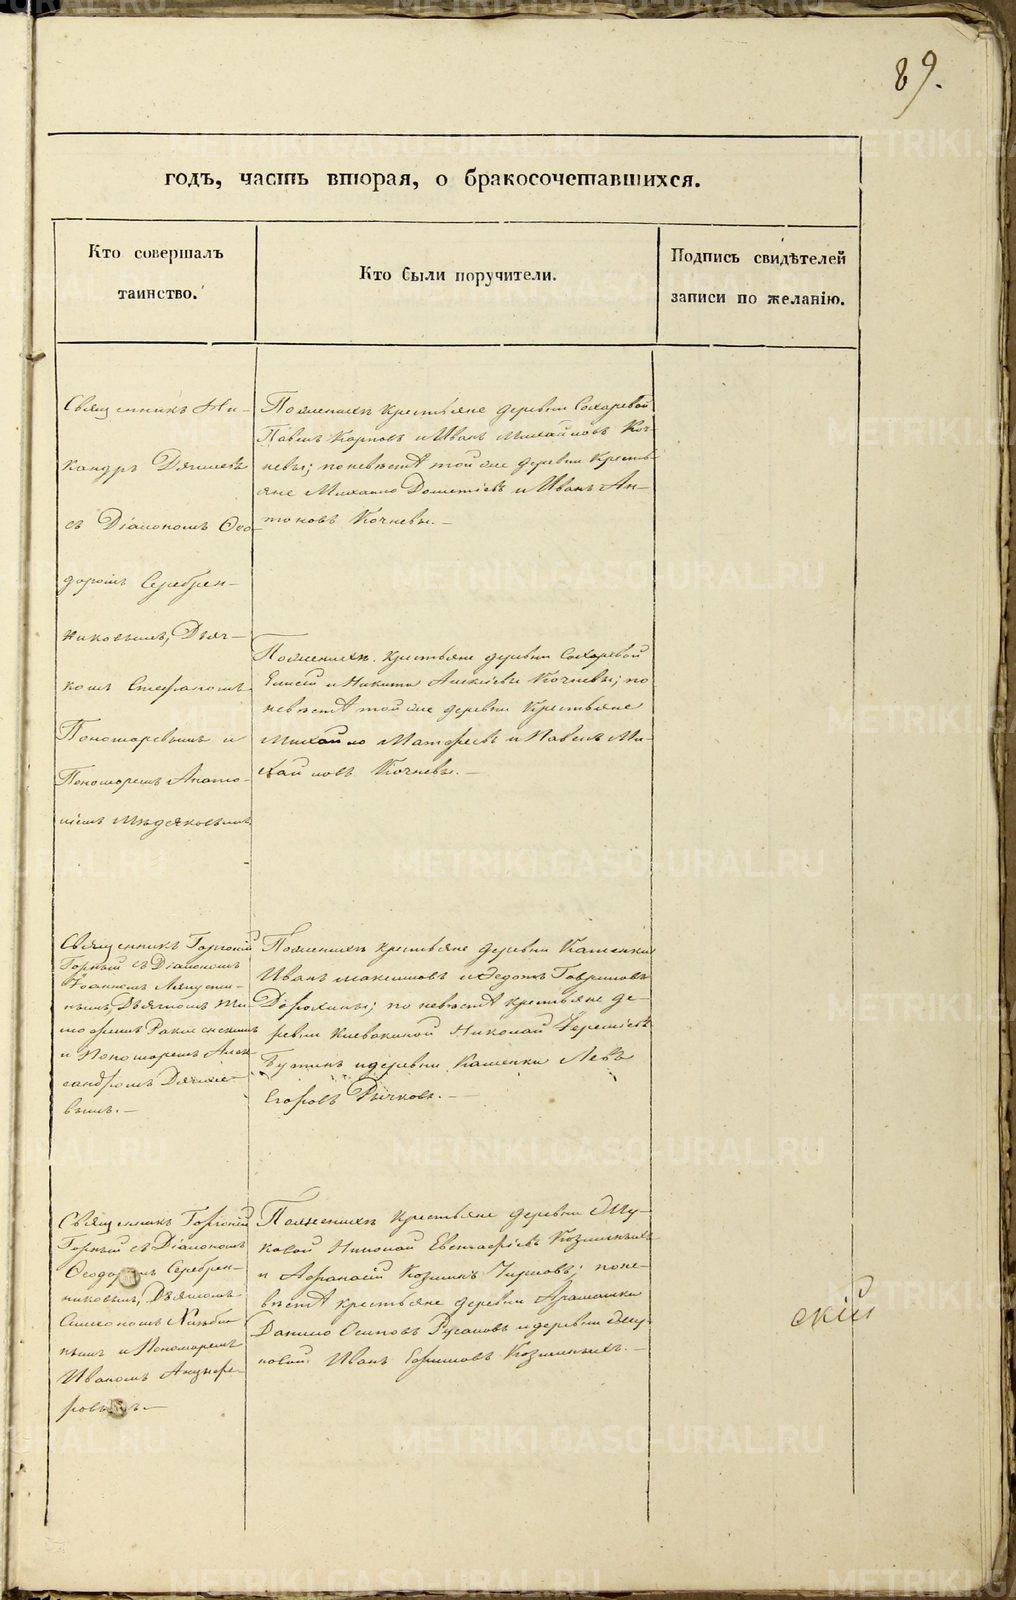 89.
годъ, часть вторая, о бракосочетавшихся.
Кто совершалъ
таинство.
Кто были поручители.
Подпись свидѣтелей
записи по желанію.
Священникъ Ни-
кандръ
съ Діакономъ Ѳео-
доромъ Серебрен-
никовымъ, Дьяч-
комъ Стефаномъ
Пономаревымъ и
Пономаремъ Анато-
ліемъ
По женихѣ крестьяне деревни Сохаревой
Павелъ Карповъ и Иванъ Михайловъ Коч-
невы; по невѣстѣ той же деревни кресть-
яне Михаило Дометіевъ и Иванъ Ан-
тоновъ Кочневы.-
По женихѣ крестьяне деревни Сохаревой
Елисей и Никита Алексѣевы Кочневы; по
невѣстѣ той же деревни крестьяне
Михайло Матфеевъ и Павелъ Ми-
хайловъ Кочневы.-
Священникъ Горгоній
Горный съ Діакономъ
Іоанномъ
Дьячкомъ Ти-
мофеемъ
и Пономаремъ Алек-
сандромъ
вымъ.-
По женихѣ крестьяне деревни Каменки
Иванъ Максимовъ и Федотъ Гавриловъ
Дорохины; по невѣстѣ крестьяне де-
ревни Клевакиной Николай
и деревни Каменки Левъ
Егоровъ Рычковъ.-
Священникъ Горгоній
Горный съ Діакономъ
Ѳеодоромъ Серебрен-
никовымъ, Дьячкомъ
Симеономъ
и Пономаремъ
Иваномъ Анцыфе-
ровымъ.-
По женихѣ крестьяне деревни Глу-
ховой Николай Евстафіевъ Козминыхъ
и Афанасій Козминъ Чирковъ; по не-
вѣстѣ крестьяне деревни Арамашки
Данило Осиповъ Русаковъ и деревни Глу-
ховой Иванъ Ефимовъ Козминыхъ.-
скій
METRIKI.GASO-URAL.RU